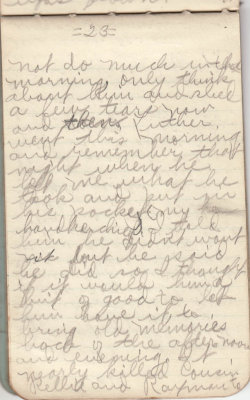 =23=
not do much in the
morning only think
about him and shed
a few tears now
and then, either.
went this morning
and remember that
night when he
let me what he
took and put in
his pocket, my
handkerchief I told
him he didnt want
it but he said
he did so I thought
if it would him any
good to let
him have it to
bring old memories
back of the afternoon
and evening. It
nearly killed Cousin
Nellie and Raymond